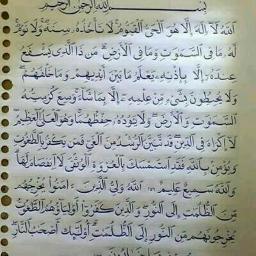 بسم الله الرحمن الرحيم
اللَّهُ لَا إِلَهَ إِلَّا هُوَ الْحَيُّ الْقَيُّومُ لَا تَأْخُذُهُ سِنَةٌ وَلَا نَوْمٌ
لَهُ مَا فِي السَّمَوَتِ وَمَا فِي الْأَرْضِ مَنْ ذَا الَّذِي يَشْفَعُ
عِنْدَهُ إِلَّا بِإِذْنِهِ يَعْلَمُ مَا بَيْنَ أَيْدِيهِمْ وَمَا خَلْفَهُمْ
وَلَا يُحِيطُونَ بِشَيْءٍ مِنْ عِلْمِهِ إِلَّا بِمَا شَاءَ وَسِعَ كُرْسِيُّهُ
السَّمَوَتِ وَالْأَرْضَ وَلَا يَئُودُهُ حِفْظُهُمَا وَهُوَ الْعَلِيُّ الْعَظِيمُ
لَا إِكْرَاهَ فِي الدِّينِ قَدْ تَبَيَّنَ الرُّشْدُ مِنَ الْغَيِّ فَمَنْ يَكْفُرْ بِالطَّغُوتِ
وَيُؤْمِنْ بِاللَّهِ فَقَدِ اسْتَمْسَكَ بِالْعُرْوَةِ الْوُثْقَى لَا انْفِصَامَ لَهَا
وَاللَّهُ سَمِيعٌ عَلِيمٌ اللَّهُ وَلِيُّ الَّذِينَ ءَامَنُوا يُخْرِجُهُمْ
مِنَ الظُّلُمَتِ إِلَى النُّورِ وَالَّذِينَ كَفَرُوا أَوْلِيَاؤُهُمُ الطَّغُوتُ
يُخْرِجُونَهُمْ مِنَ النُّورِ إِلَى الظُّلُمَتِ أُولَئِكَ أَصْحَبُ النَّارِ